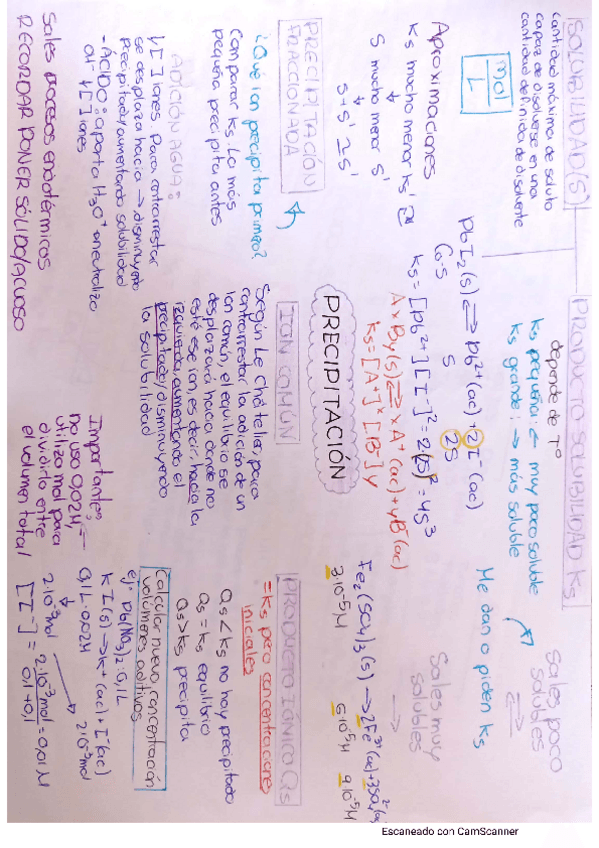 SOLUBILIDAD(S)
cantidad máxima de soluto
capaz de disolverse en una
cantidad definida de disolvente
mol
L
Aproximaciones
Ks mucho menor Ks'
S mucho menor S'
S + S' ≃ S'
PRECIPITACIÓN
FRACCIONADA
¿Qué ion precipita primero?
Comparar Ks. La más
pequeña precipita antes
ADICIÓN AGUA:
↓[ ] iones. Para contrarrestar
se desplaza hacia → disminuyendo
precipitado/aumentando solubilidad
- ACIDO: aporta H3O+ q neutraliza
OH- ↓[ ] iones
Sales procesos endotérmicos
RECORDAR PONER SÓLIDO/ACUOSO
PRODUCTO SOLUBILIDAD Ks
depende de Tº
Ks pequeña: ← muy poco soluble
Ks grande: → más soluble
PbI2(s) ⇌ Pb2+(ac) + 2I-(ac)
Co-S S 2S
Ks = [Pb2+][I-]2 = S·(2S)2 = 4S3
AxBy(s) ⇌ xA+(ac) + yB-(ac)
Ks = [A+]x [B-]y
PRECIPITACIÓN
ION COMÚN
Según Le Châtelier, para
contrarrestar la adición de un
ion común, el equilibrio se
desplazará hacia donde no
esté ese ion, es decir, hacia la
izquierda, aumentando el
precipitado/disminuyendo
la solubilidad
Sales poco
solubles
⇌
Me dan o piden Ks
Sales muy
solubles
→
Fe2(SO4)3(s) → 2Fe3+(ac) + 3SO42-(ac)
3·10-5M 6·10-5M 9·10-5M
PRODUCTO IÓNICO Qs
= Ks pero concentraciones
iniciales
Qs < Ks no hay precipitado
Qs = Ks equilibrio
Qs > Ks precipita
Calcular nueva concentración
volúmenes aditivos
ej: Pb(NO3)2: 0,1L
KI(s) → K+(ac) + I-(ac)
0,1L·0,02M 2·10-3mol
2·10-3mol
[I-] = 2·10-3mol / 0,1+0,1 = 0,01M
Importante:
no uso 0,02M,
utilizo mol para
dividirlo entre
el volumen total
Escaneado con CamScanner